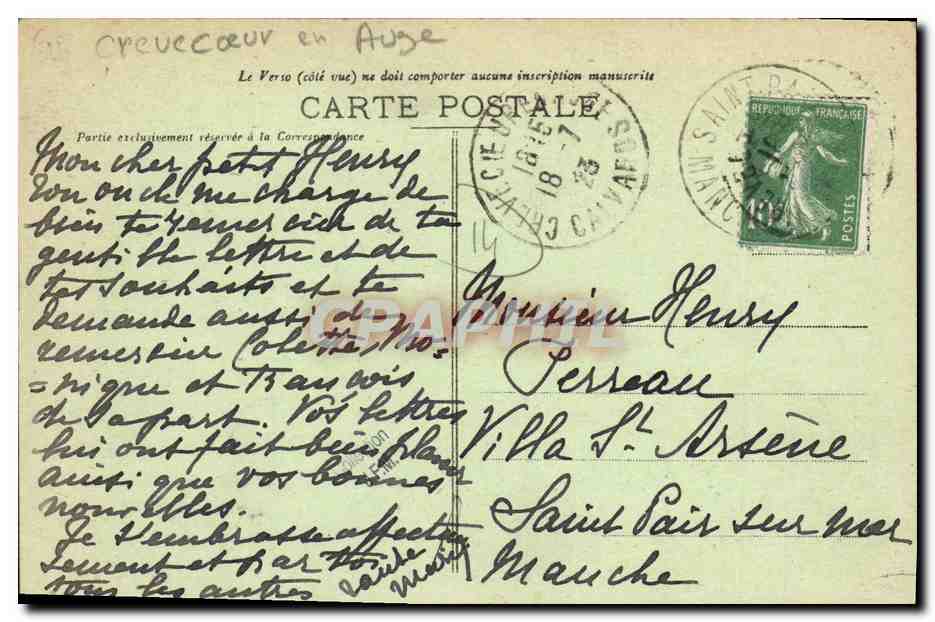 crevecœur en Auge
Le Verso (côté vue) ne doit comporter aucune inscription manuscrite
CARTE POSTALE
Partie exclusivement réservée à la Correspondance
Mon cher petit Henry
ton oncle me charge de
bien te remercier de ta
gentille lettre et de
tes souhaits et te
demande aussi de
remercier Colette, Mo=
=nique et François
de sa part. Vos lettres
lui ont fait bien plaisir
ainsi que vos bonnes
nouvelles.
Je t'embrasse affectueu
sement et par toi
tous les autres
tante
Marie
14
18 15
18 -7
23
CALVADOS
SAINT-PAIR
MANCHE
REPUBLIQUE FRANÇAISE
10c
POSTES
Monsieur Henry
Perreau
Villa St Arsène
Saint Pair sur mer
Manche
CPAPHIL
Collection
F.M.